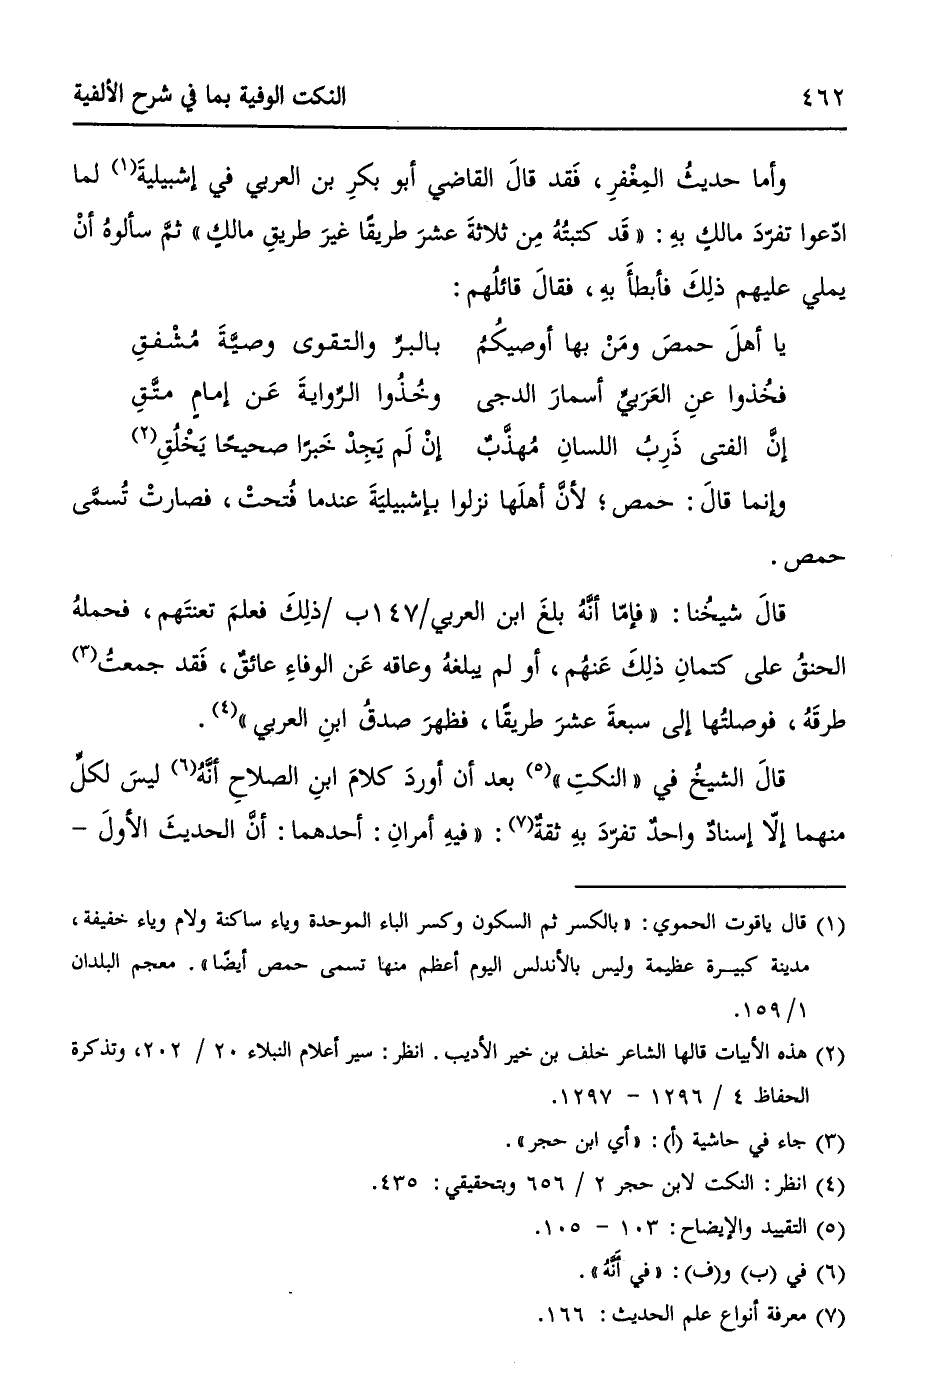 ٤٦٢ النكت الوفية بما في شرح الألفية
وأما حديثُ المِغْفرِ، فَقد قالَ القاضي أبو بكرِ بن العربي في إشبيليةَ(١) لما
ادّعوا تفرّدَ مالكٍ بهِ: «قَد كتبتُهُ مِن ثلاثةَ عشرَ طريقًا غيرَ طريقِ مالكٍ» ثمَّ سألوهُ أنْ
يملي عليهم ذلِكَ فأبطأَ بهِ، فقالَ قائلُهم:
يا أهلَ حمصَ ومَنْ بها أوصيكُمُ بالبرِّ والتقوى وصيَّةَ مُشْفقِ
فخُذوا عنِ العَرَبيِّ أسمارَ الدجى وخُذُوا الرِّوايةَ عَن إمامٍ متَّقِ
إنَّ الفتى ذَرِبُ اللسانِ مُهذَّبٌ إنْ لَم يَجِدْ خَبرًا صحيحًا يَخْلُقِ(٢)
وإنما قالَ: حمص؛ لأنَّ أهلَها نزلوا بإشبيليَةَ عندما فُتحتْ، فصارتْ تُسمَّى
حمص.
قالَ شيخُنا: «فإمّا أنَّهُ بلغَ ابن العربي/١٤٧ب /ذلِكَ فعلمَ تعنتَهم، فحملهُ
الحنقُ على كتمانِ ذلِكَ عَنهُم، أو لم يبلغهُ وعاقه عَن الوفاءِ عائقٌ، فَقد جمعتُ(٣)
طرقَهُ، فوصلتُها إلى سبعةَ عشرَ طريقًا، فظهرَ صدقُ ابنِ العربي»(٤).
قالَ الشيخُ في «النكتِ»(٥) بعد أن أوردَ كلامَ ابنِ الصلاحِ أنَّهُ(٦) ليسَ لكلٍّ
منهما إلّا إسنادٌ واحدٌ تفرّدَ بهِ ثقةٌ(٧): «فيهِ أمرانِ: أحدهما: أنَّ الحديثَ الأولَ -
(١) قال ياقوت الحموي: «بالكسر ثم السكون وكسر الباء الموحدة وياء ساكنة ولام وياء خفيفة،
مدينة كبيرة عظيمة وليس بالأندلس اليوم أعظم منها تسمى حمص أيضًا». معجم البلدان
١/ ١٥٩.
(٢) هذه الأبيات قالها الشاعر خلف بن خير الأديب. انظر: سير أعلام النبلاء ٢٠ / ٢٠٢، وتذكرة
الحفاظ ٤ / ١٢٩٦ - ١٢٩٧.
(٣) جاء في حاشية (أ): «أي ابن حجر».
(٤) انظر: النكت لابن حجر ٢ / ٦٥٦ وبتحقيقي: ٤٣٥.
(٥) التقييد والإيضاح: ١٠٣ - ١٠٥.
(٦) في (ب) و(ف): «في أَنَّهُ».
(٧) معرفة أنواع علم الحديث: ١٦٦.